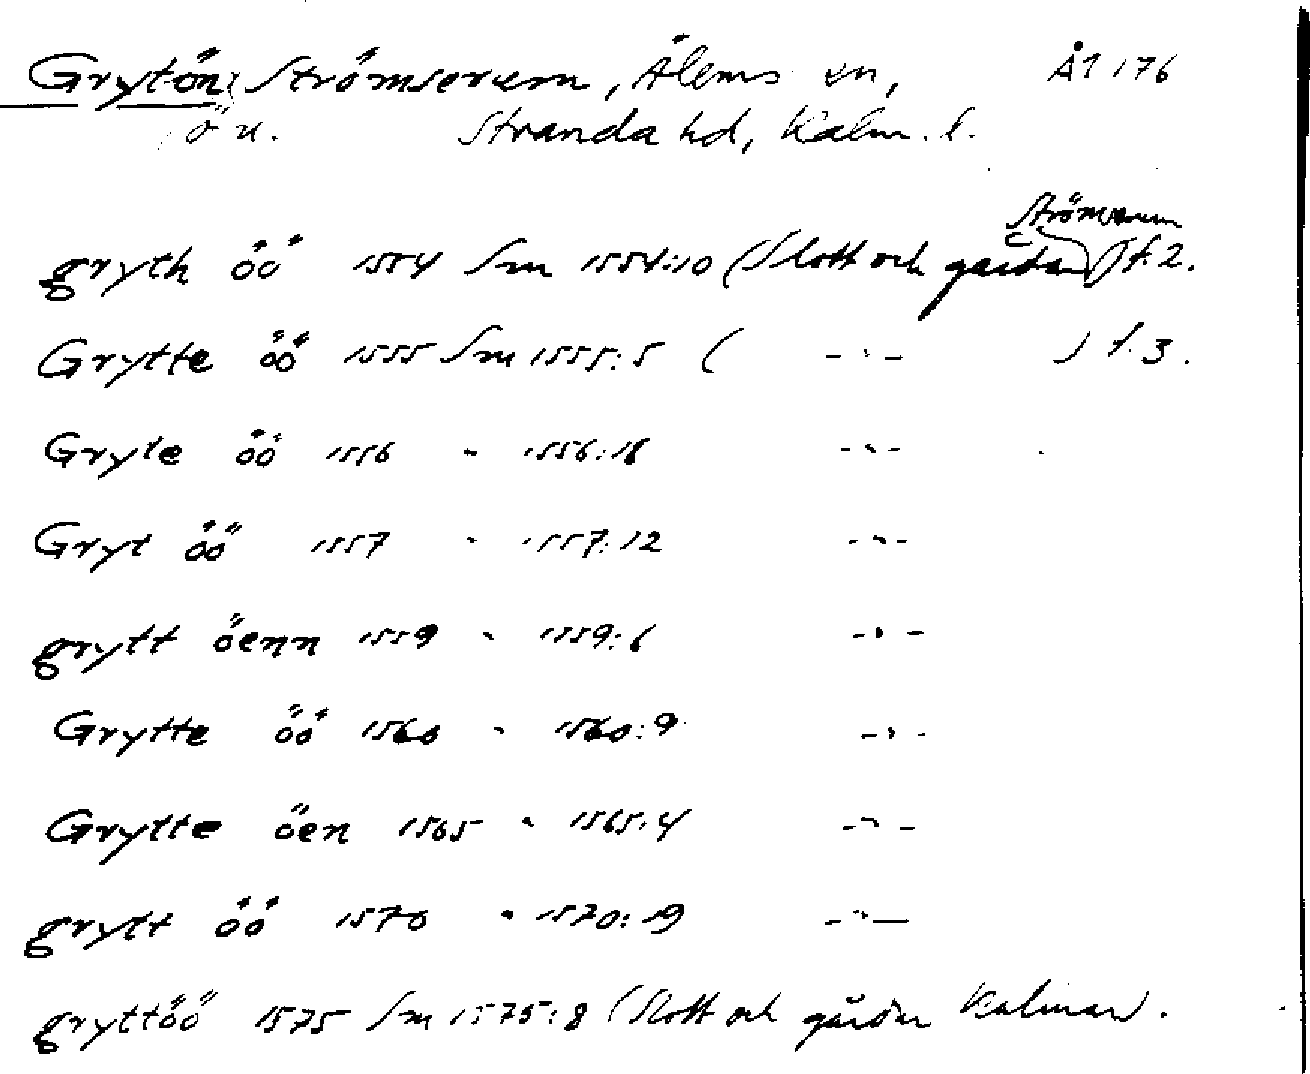 Grytön, Strömserum, Ålems sn, Ål 176
ö u. Stranda hd, Kalm. l.
Strömserum
gryth öö 1554 Sm 1554:10 (Slott och gårdar) f. 2.
Grytte öö 1555 Sm 1555:5 ( -"- ) f. 3.
Gryte öö 1556 " 1556:18 -"-
Gryt öö 1557 " 1557:12 -"-
grytt öenn 1559 " 1559:6 -"-
Grytte öö 1560 " 1560:9 -"-
Grytte öen 1565 " 1565:4 -"-
grytt öö 1570 " 1570:19 -"-
gryttöö 1575 Sm 1575:8 (Slott och gårdar Kalmar).